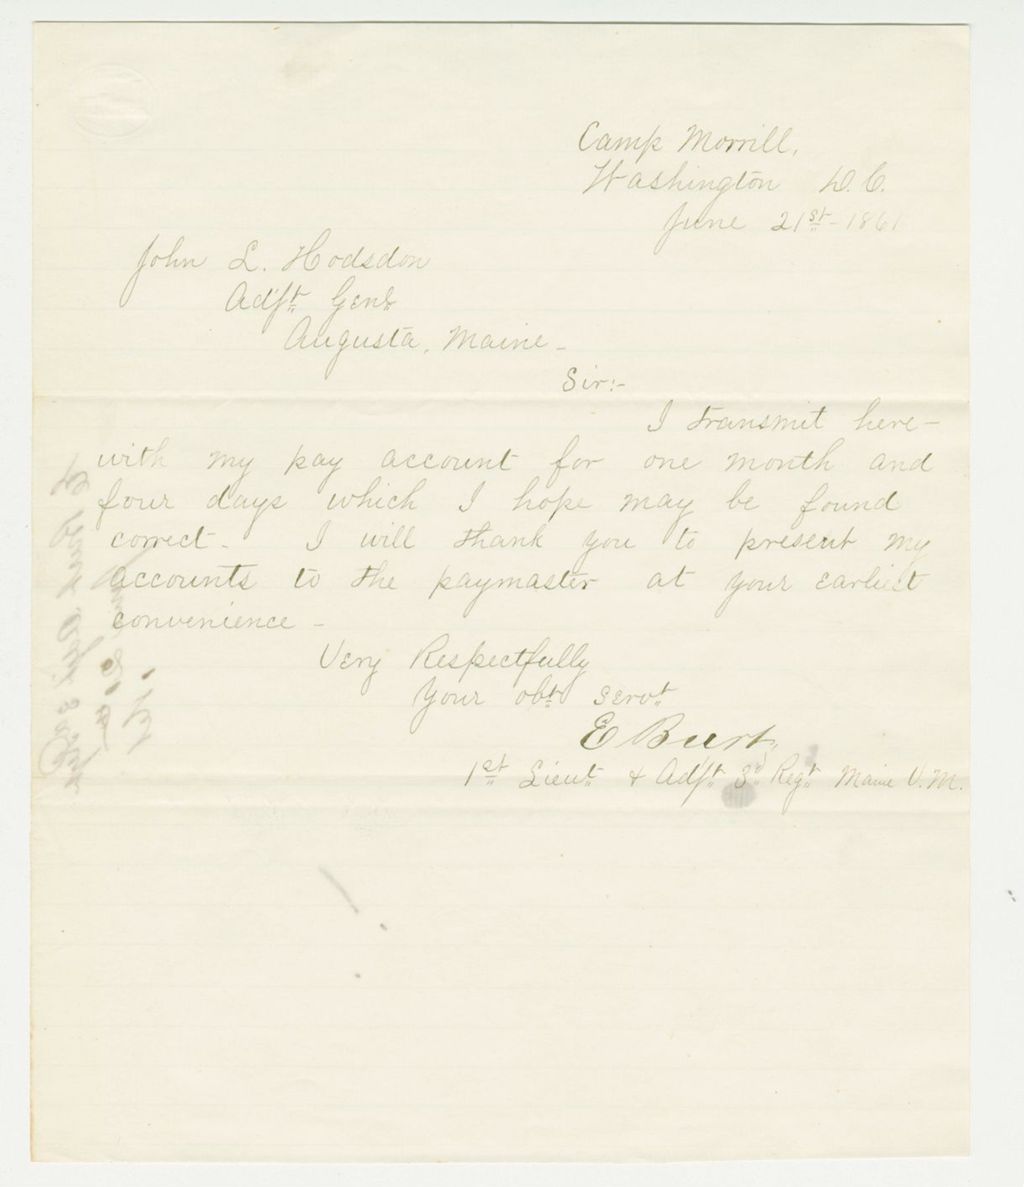 Camp Morrill,
Washington D.C.
June 21st - 1861
John L. Hodsdon
Adjt Genl
Augusta, Maine -
Sir:-
I transmit here-
with my pay account for one month and
four days which I hope may be found
correct - I will thank you to present my
accounts to the paymaster at your earliest
convenience -
Very Respectfully
Your obt servt
E Burt,
1st Lieut & Adjt 3d Regt Maine V.M.